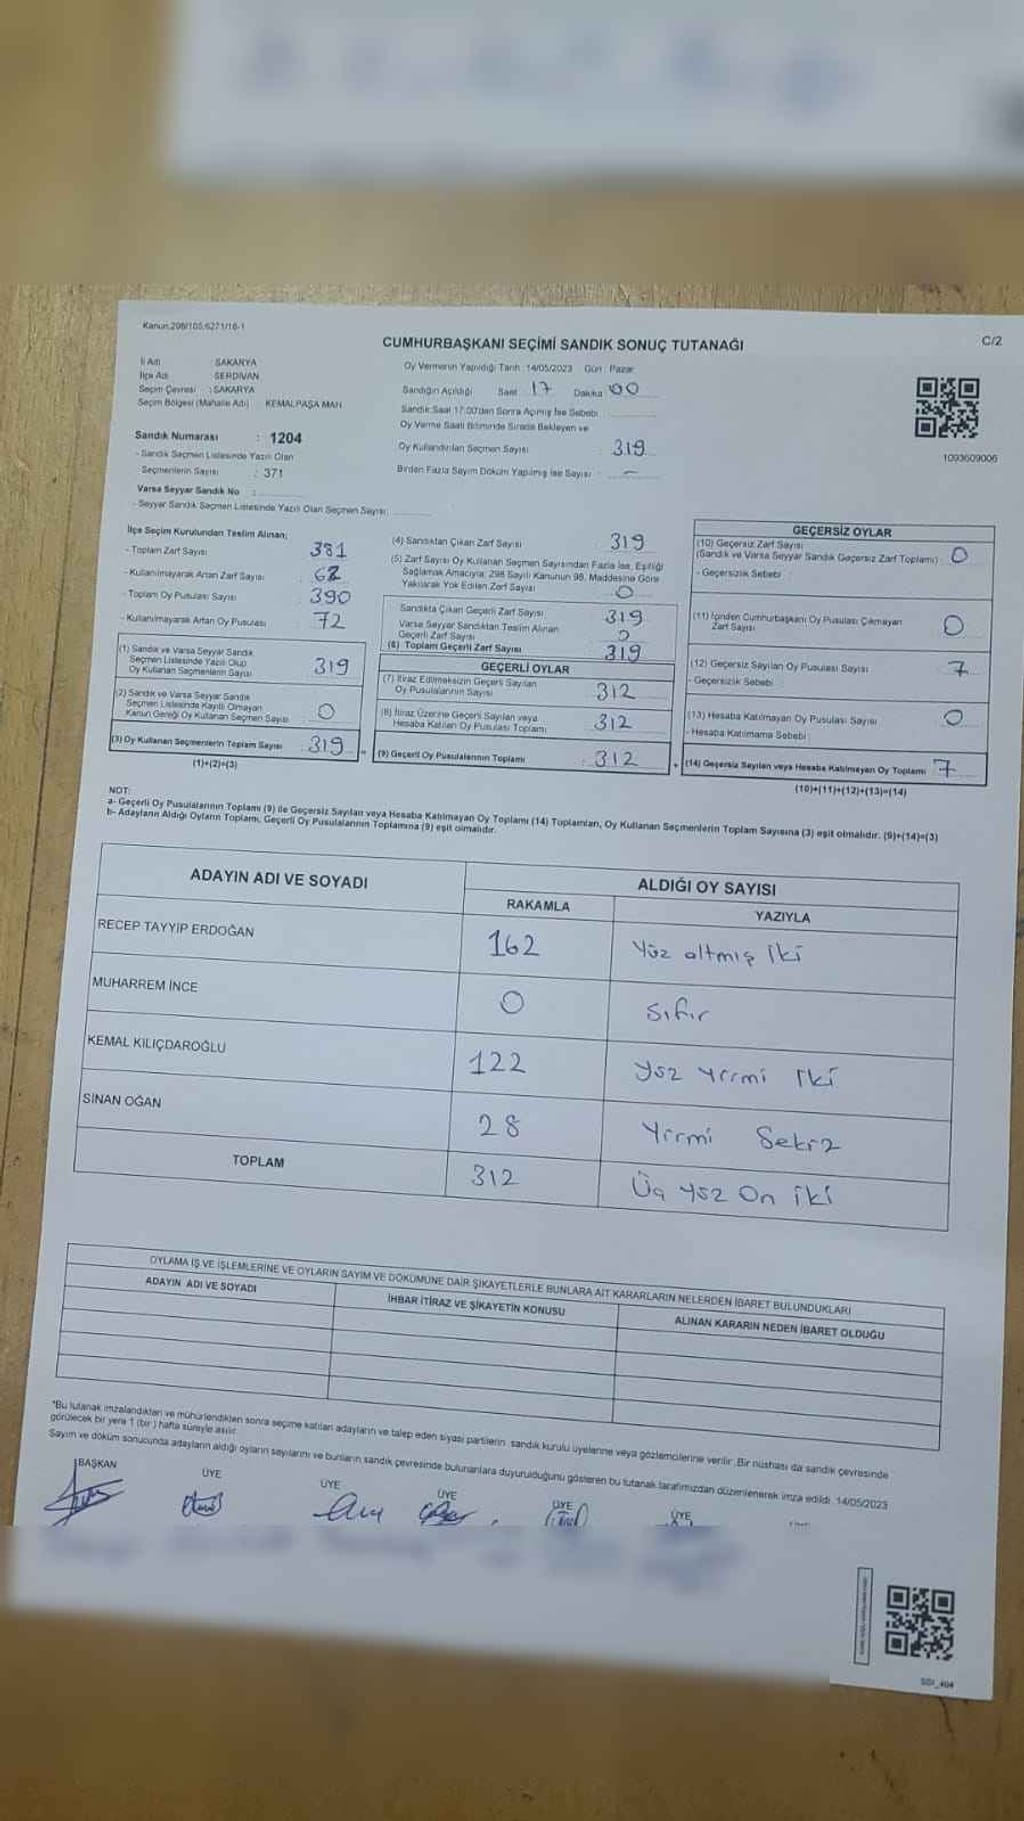 Kanun:298/105,6271/16-1
C/2
CUMHURBAŞKANI SEÇİMİ SANDIK SONUÇ TUTANAĞI
İl Adı : SAKARYA
İlçe Adı : SERDİVAN
Seçim Çevresi : SAKARYA
Seçim Bölgesi (Mahalle Adı) : KEMALPAŞA MAH.
Sandık Numarası : 1204
- Sandık Seçmen Listesinde Yazılı Olan
Seçmenlerin Sayısı : 371
Varsa Seyyar Sandık No :
- Seyyar Sandık Seçmen Listesinde Yazılı Olan Seçmen Sayısı:
Oy Vermenin Yapıldığı Tarih : 14/05/2023 Gün : Pazar
Sandığın Açıldığı Saat 17 Dakika 00
Sandık Saat 17:00'dan Sonra Açılmış İse Sebebi
Oy Verme Saati Bitiminde Sırada Bekleyen ve
Oy Kullandırılan Seçmen Sayısı : 319
Birden Fazla Sayım Döküm Yapılmış İse Sayısı : -
1093609006
İlçe Seçim Kurulundan Teslim Alınan;
- Toplam Zarf Sayısı : 381
- Kullanılmayarak Artan Zarf Sayısı : 62
- Toplam Oy Pusulası Sayısı : 390
- Kullanılmayarak Artan Oy Pusulası : 72
(1) Sandık ve Varsa Seyyar Sandık
Seçmen Listesinde Yazılı Olup
Oy Kullanan Seçmenlerin Sayısı : 319
(2) Sandık ve Varsa Seyyar Sandık
Seçmen Listesinde Kayıtlı Olmayan
Kanun Gereği Oy Kullanan Seçmen Sayısı : 0
(3) Oy Kullanan Seçmenlerin Toplam Sayısı : 319
(1)+(2)=(3)
(4) Sandıktan Çıkan Zarf Sayısı : 319
(5) Zarf Sayısı Oy Kullanan Seçmen Sayısından Fazla İse, Eşitliği
Sağlamak Amacıyla; 298 Sayılı Kanunun 98. Maddesine Göre
Yakılarak Yok Edilen Zarf Sayısı : 0
Sandıkta Çıkan Geçerli Zarf Sayısı : 319
Varsa Seyyar Sandıktan Teslim Alınan
Geçerli Zarf Sayısı : 0
(6) Toplam Geçerli Zarf Sayısı : 319
GEÇERLİ OYLAR
(7) İtiraz Edilmeksizin Geçerli Sayılan
Oy Pusulalarının Sayısı : 312
(8) İtiraz Üzerine Geçerli Sayılan veya
Hesaba Katılan Oy Pusulası Toplamı : 312
(9) Geçerli Oy Pusulalarının Toplamı : 312
GEÇERSİZ OYLAR
(10) Geçersiz Zarf Sayısı
(Sandık ve Varsa Seyyar Sandık Geçersiz Zarf Toplamı) : 0
- Geçersizlik Sebebi :
(11) İçinden Cumhurbaşkanı Oy Pusulası Çıkmayan
Zarf Sayısı 0
(12) Geçersiz Sayılan Oy Pusulası Sayısı : 7
- Geçersizlik Sebebi
(13) Hesaba Katılmayan Oy Pusulası Sayısı : 0
- Hesaba Katılmama Sebebi :
(14) Geçersiz Sayılan veya Hesaba Katılmayan Oy Toplamı 7
(10)+(11)+(12)+(13)=(14)
NOT:
a- Geçerli Oy Pusulalarının Toplamı (9) ile Geçersiz Sayılan veya Hesaba Katılmayan Oy Toplamı (14) Toplamları, Oy Kullanan Seçmenlerin Toplam Sayısına (3) eşit olmalıdır. (9)+(14)=(3)
b- Adayların Aldığı Oyların Toplamı, Geçerli Oy Pusulalarının Toplamına (9) eşit olmalıdır.
ADAYIN ADI VE SOYADI
ALDIĞI OY SAYISI
RAKAMLA YAZIYLA
RECEP TAYYİP ERDOĞAN 162 Yüz altmış iki
MUHARREM İNCE 0 Sıfır
KEMAL KILIÇDAROĞLU 122 yüz yirmi iki
SİNAN OĞAN 28 Yirmi Sekiz
TOPLAM 312 Üç yüz On iki
OYLAMA İŞ VE İŞLEMLERİNE VE OYLARIN SAYIM VE DÖKÜMÜNE DAİR ŞİKAYETLERLE BUNLARA AİT KARARLARIN NELERDEN İBARET BULUNDUKLARI
ADAYIN ADI VE SOYADI
İHBAR İTİRAZ VE ŞİKAYETİN KONUSU
ALINAN KARARIN NEDEN İBARET OLDUĞU
*Bu tutanak imzalandıktan ve mühürlendikten sonra seçime katılan adayların ve talep eden siyasi partilerin sandık kurulu üyelerine veya gözlemcilerine verilir. Bir nüshası da sandık çevresinde
görülecek bir yere 1 (bir) hafta süreyle asılır.
Sayım ve döküm sonucunda adayların aldığı oyların sayılarını ve bunların sandık çevresinde bulunanlara duyurulduğunu gösteren bu tutanak tarafımızdan düzenlenerek imza edildi. 14/05/2023
BAŞKAN
ÜYE
ÜYE
ÜYE
ÜYE
ÜYE